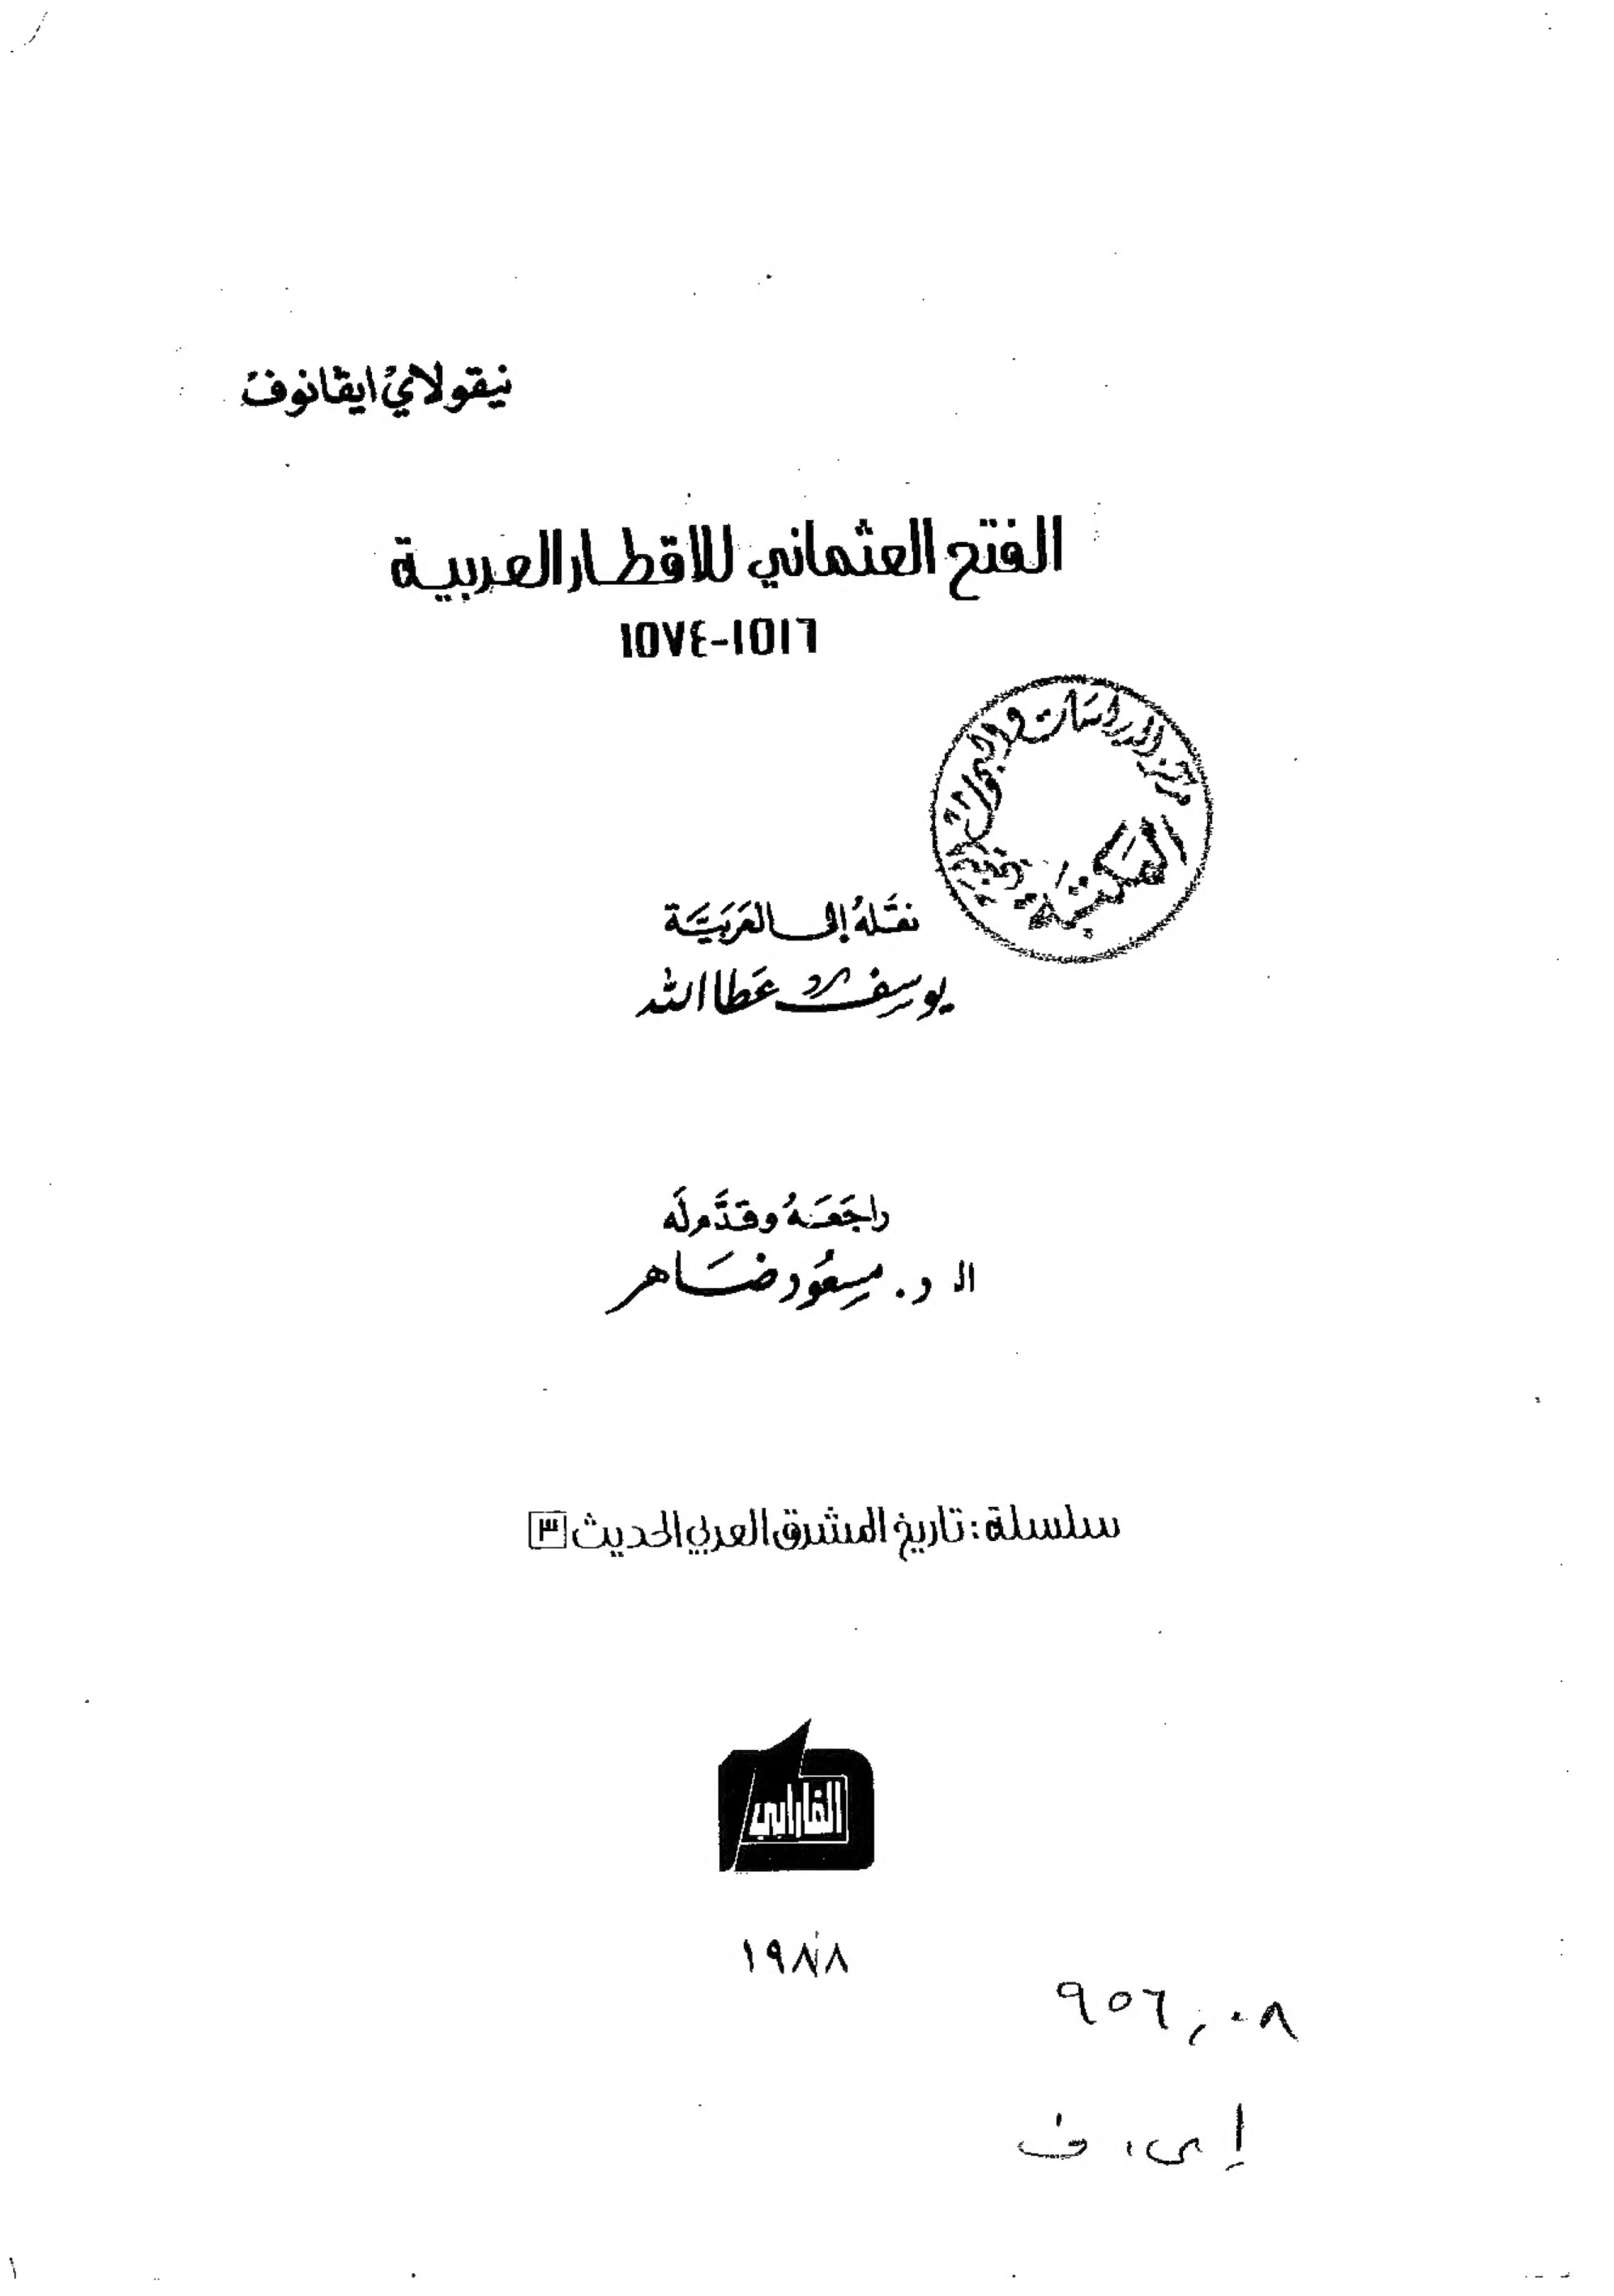 نيقولاي ايڤانوف
الفتح العثماني للاقطار العربية
١٥١٦-١٥٧٤
مركز الدراسات والبحوث
المكتبة
نقله إلى العربية
يوسف عطا الله
راجعه وقدّم له
ا. د. مسعود ضاهر
سلسلة: تاريخ المشرق العربي الحديث ٣
الفارابي
١٩٨٨
٩٥٦,٠٨
إ ى، ف